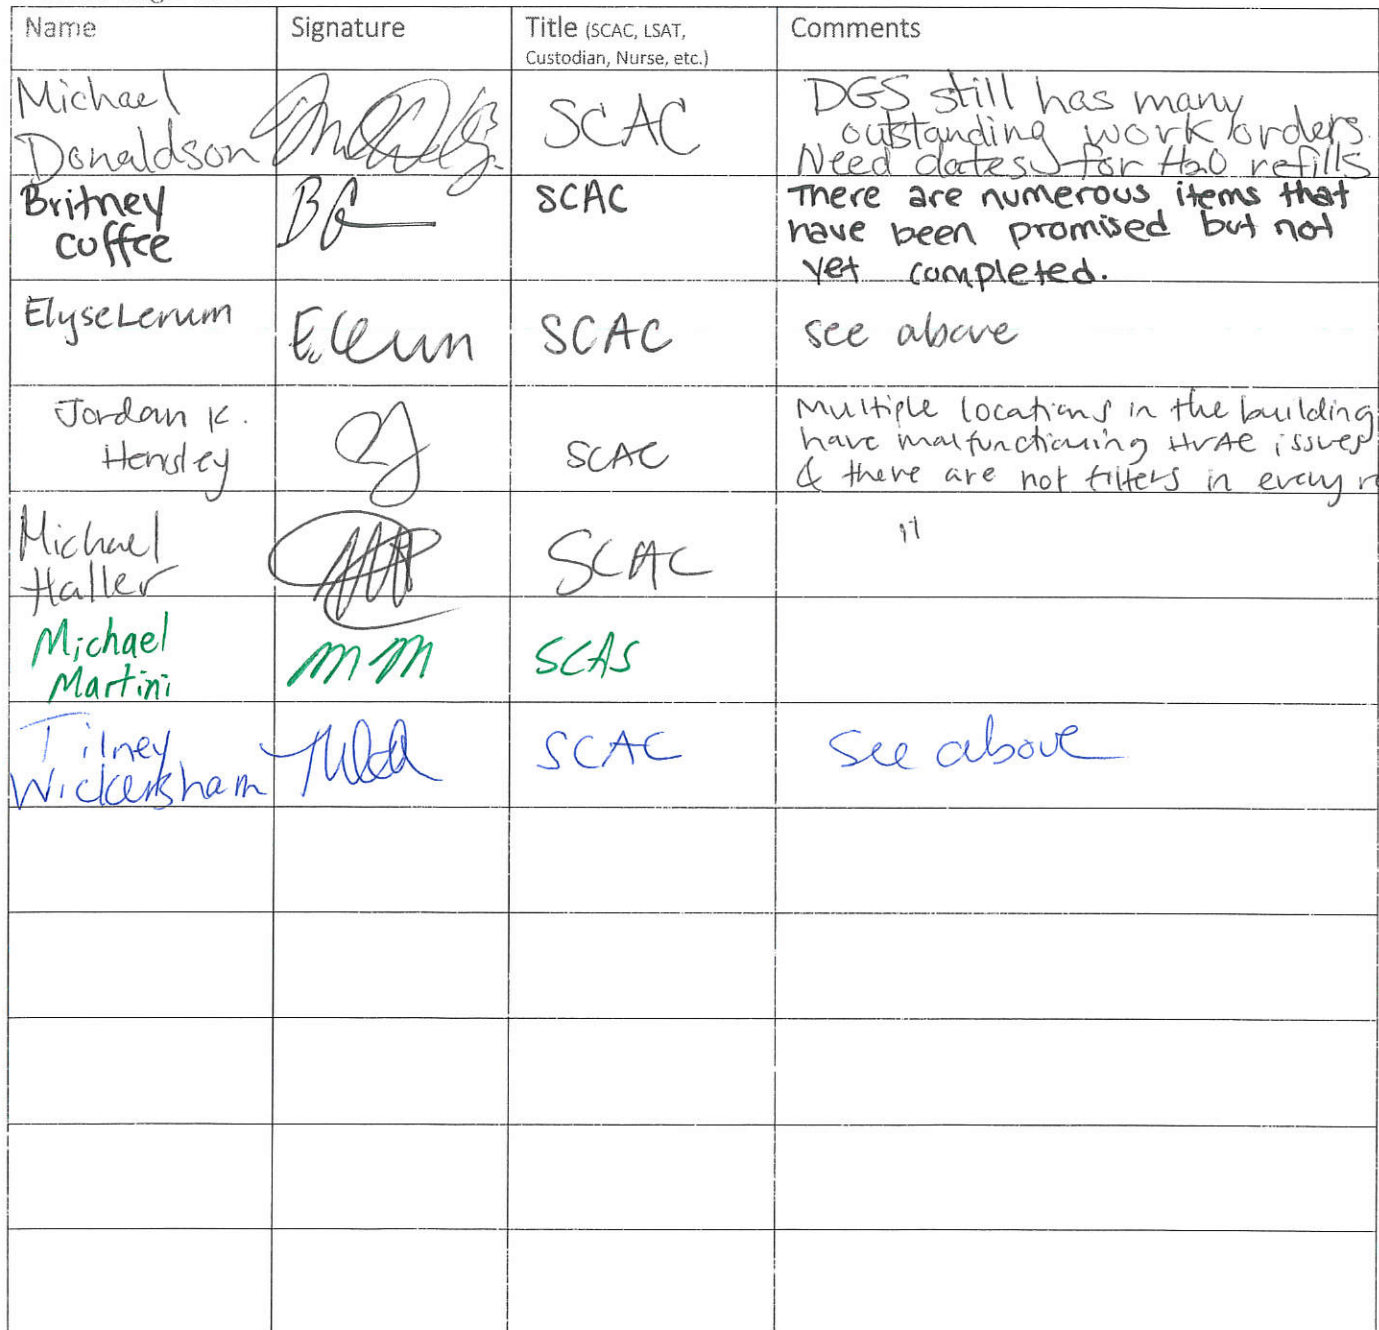 Name Signature Title (SCAC, LSAT, Comments
Custodian, Nurse, etc.)
Michael Donaldson SCAC DGS still has many
outstanding work orders.
Need dates for H2O refills
Britney Coffee SCAC There are numerous items that
have been promised but not
yet completed.
Elyse Lerum E. Lerum SCAC see above
Jordan K. Hensley SCAC Multiple locations in the building
have malfunctioning HVAC issues
& there are not filters in every r
Michael Haller SCAC "
Michael Martini MM SCAS
Tilney Wickersham SCAC See above